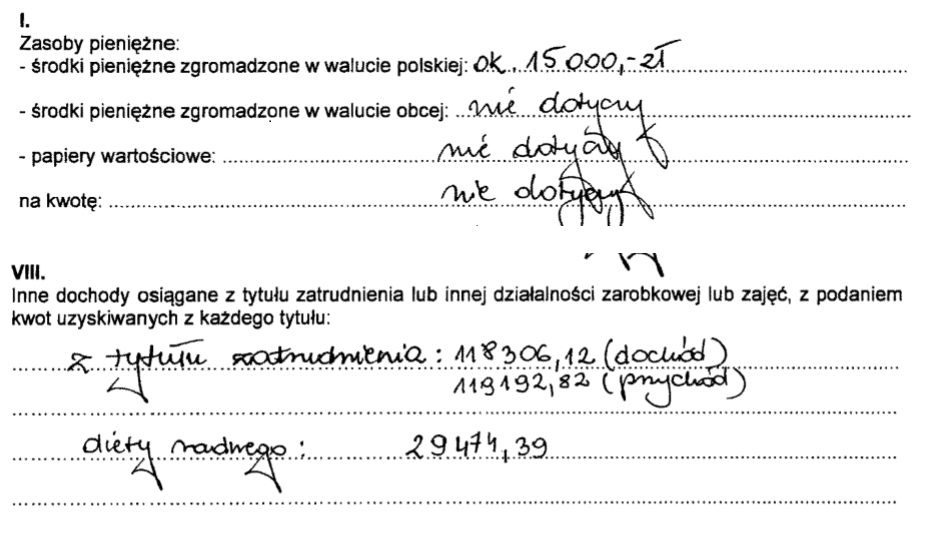 I.
Zasoby pieniężne:
- środki pieniężne zgromadzone w walucie polskiej: ok. 15000,- zł
- środki pieniężne zgromadzone w walucie obcej: nie dotyczy
- papiery wartościowe: nie dotyczy
na kwotę: nie dotyczy
VIII.
Inne dochody osiągane z tytułu zatrudnienia lub innej działalności zarobkowej lub zajęć, z podaniem
kwot uzyskiwanych z każdego tytułu:
z tytułu zatrudnienia: 118306,12 (dochód)
119192,82 (przychód)
diety radnego: 29474,39